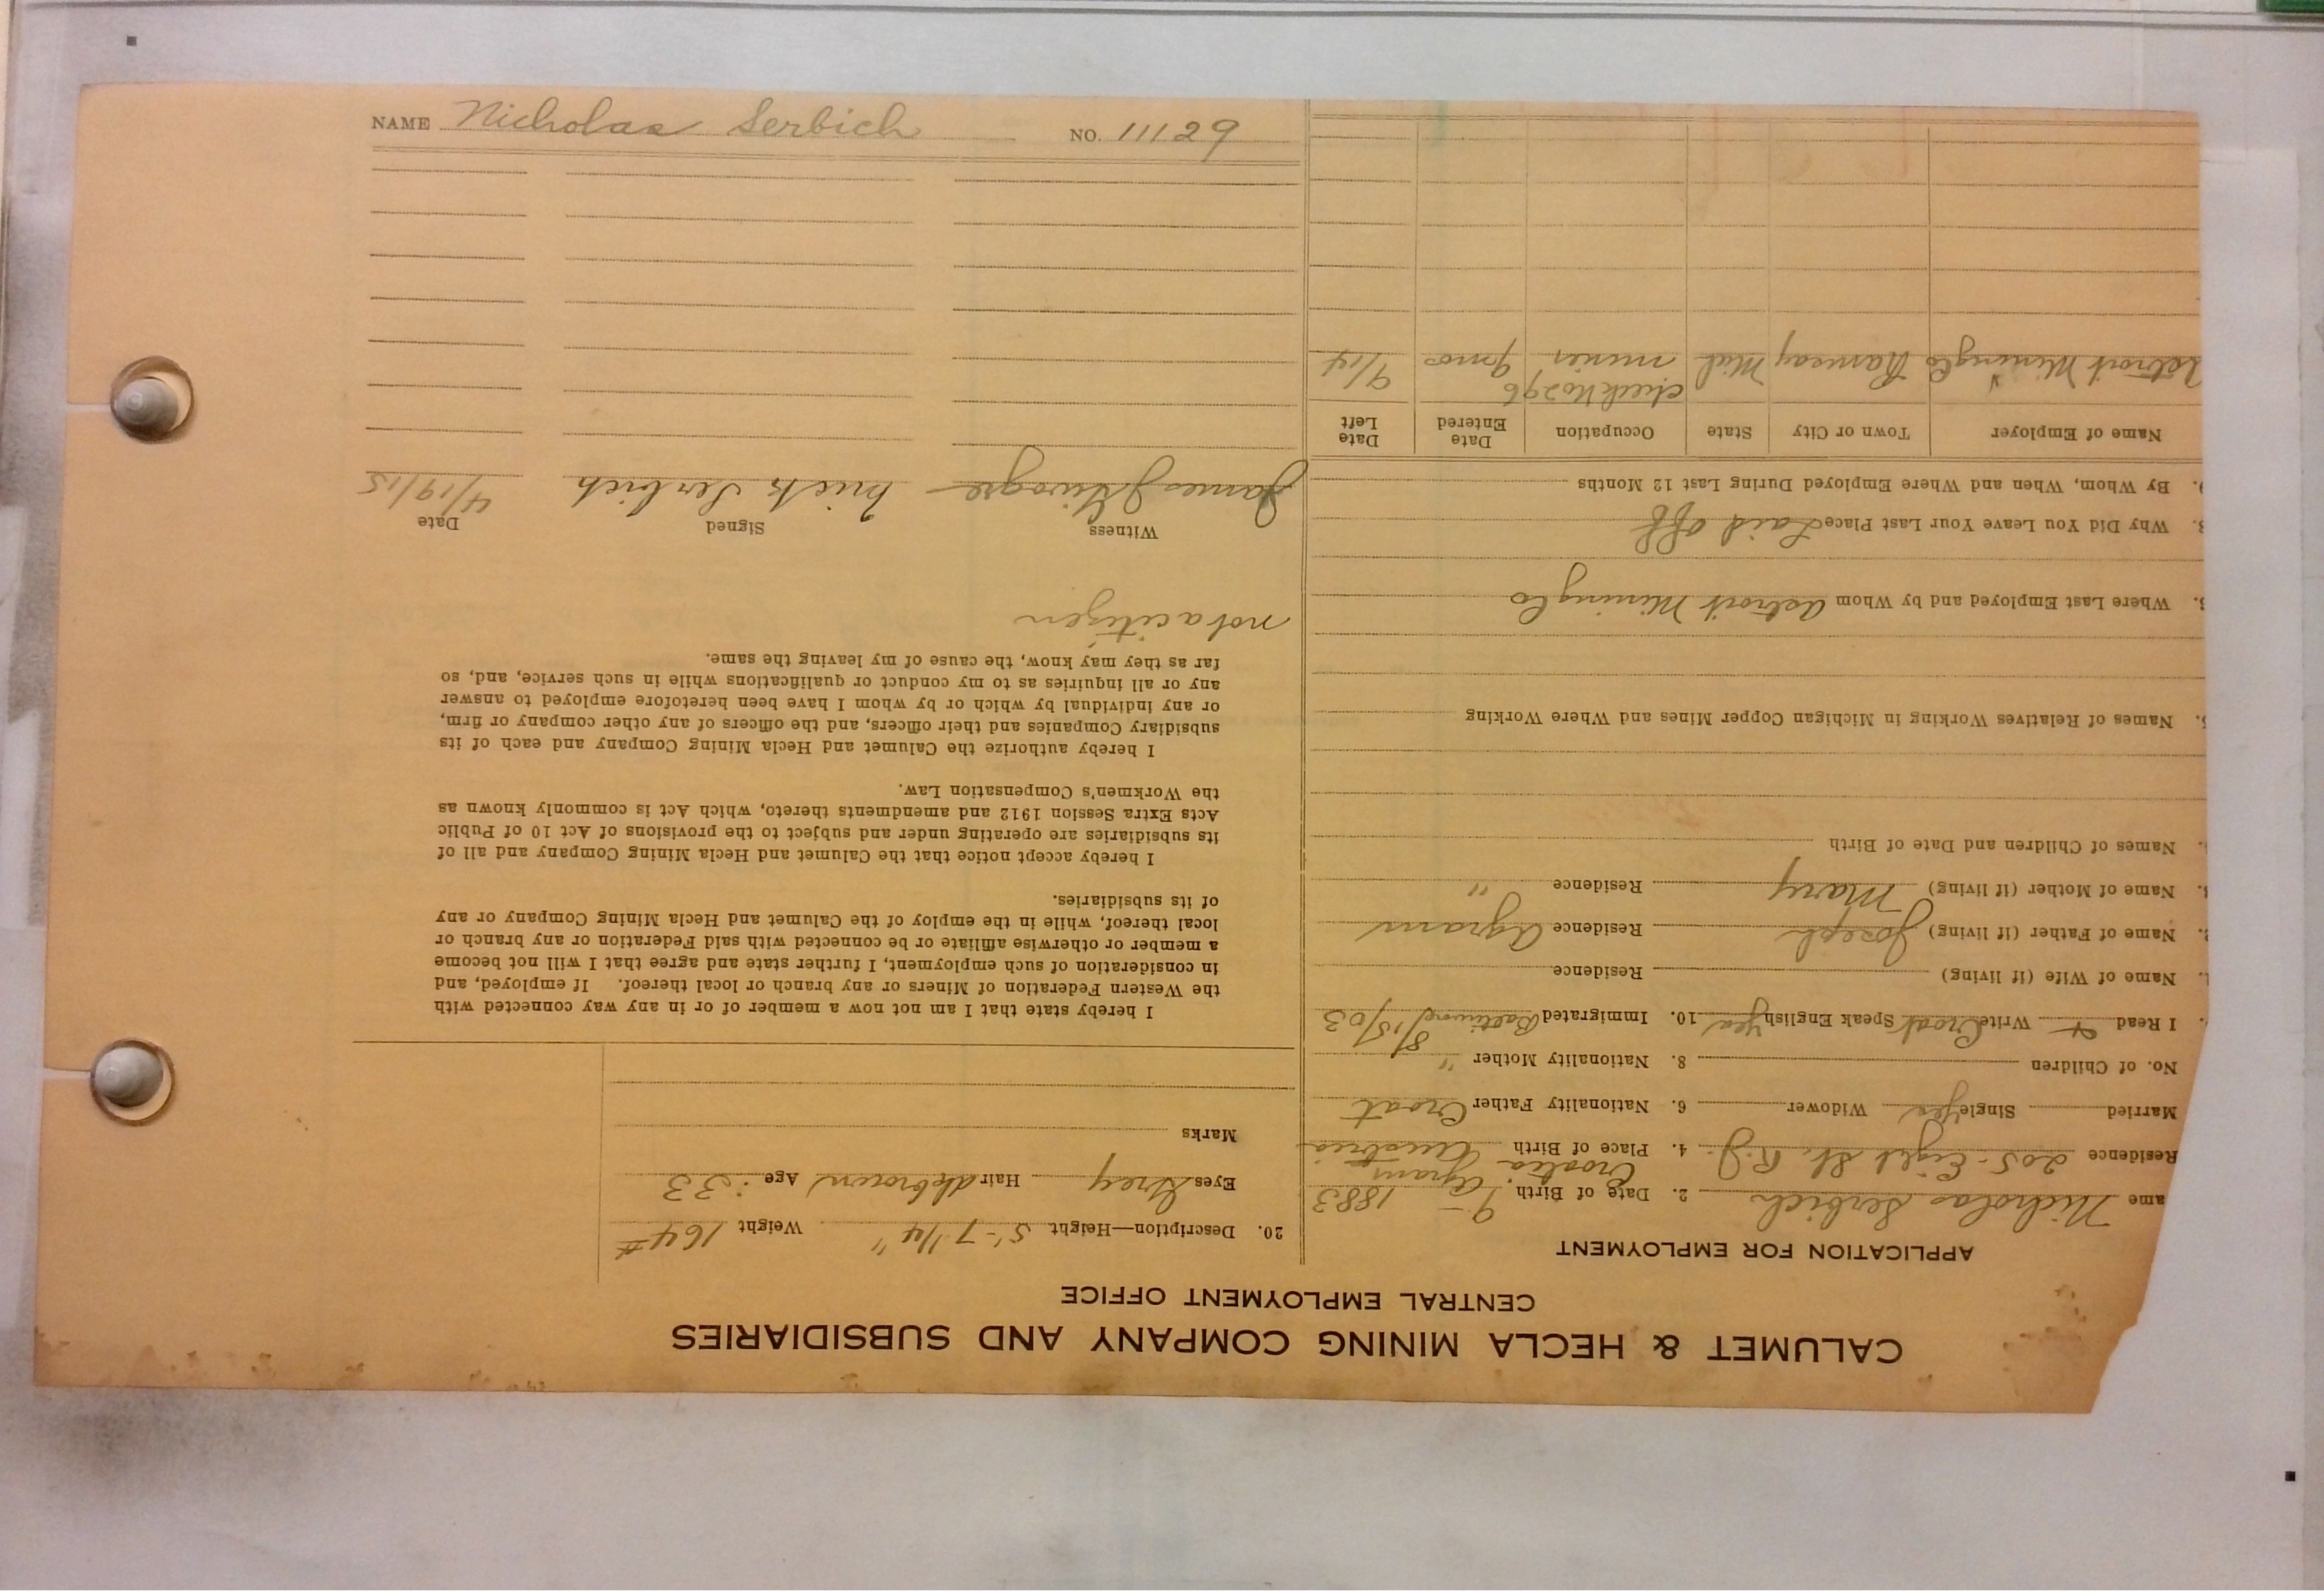 CALUMET & HECLA MINING COMPANY AND SUBSIDIARIES
CENTRAL EMPLOYMENT OFFICE
APPLICATION FOR EMPLOYMENT
ame Nicholas Serbich 2. Date of Birth 9 - 1883
Agram
Croatia
Residence 205 - Eight St. R.J. 4. Place of Birth Austria
Married Single Yes Widower 6. Nationality Father Croat
No. of Children 8. Nationality Mother "
8/15/03
I Read & Write Croat Speak English yes 10. Immigrated Baltimore
Name of Wife (if living) Residence
Name of Father (if living) Joseph Residence Agram
Name of Mother (if living) Mary Residence "
Names of Children and Date of Birth
Names of Relatives Working in Michigan Copper Mines and Where Working
Where Last Employed and by Whom Detroit Mining Co
Why Did You Leave Your Last Place Laid off
By Whom, When and Where Employed During Last 12 Months
Name of Employer Town or City State Occupation Date Entered Date Left
check No 296
Detroit Mining Co Ramsay Mich miner 9 mos 9/14
20. Description—Height 5'-7 1/4" Weight 164#
Eyes Grey Hair dk brown Age 33
Marks
I hereby state that I am not now a member of or in any way connected with
the Western Federation of Miners or any branch or local thereof. If employed, and
in consideration of such employment, I further state and agree that I will not become
a member or otherwise affiliate or be connected with said Federation or any branch or
local thereof, while in the employ of the Calumet and Hecla Mining Company or any
of its subsidiaries.
I hereby accept notice that the Calumet and Hecla Mining Company and all of
its subsidiaries are operating under and subject to the provisions of Act 10 of Public
Acts Extra Session 1912 and amendments thereto, which Act is commonly known as
the Workmen's Compensation Law.
I hereby authorize the Calumet and Hecla Mining Company and each of its
subsidiary Companies and their officers, and the officers of any other company or firm,
or any individual by which or by whom I have been heretofore employed to answer
any or all inquiries as to my conduct or qualifications while in such service, and, so
far as they may know, the cause of my leaving the same.
not a citizen
Witness Signed Date
James J Nick Serbich 4/19/15
NAME Nicholas Serbich NO. 11129